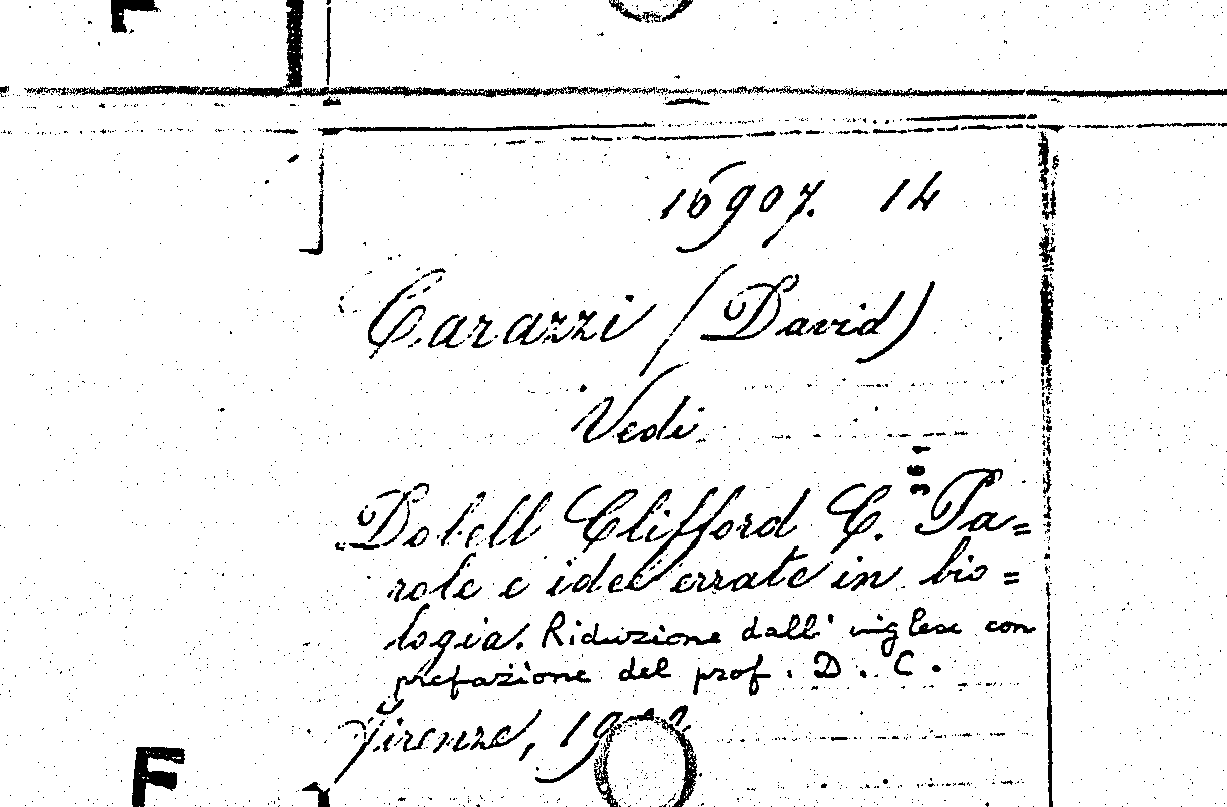 F
16907. 14
Carazzi (David)
Vedi
361
Dobell Clifford C. Pa=
role e idee errate in bio=
logia. Riduzione dall' inglese con
prefazione del prof. D. C.
Firenze,
F